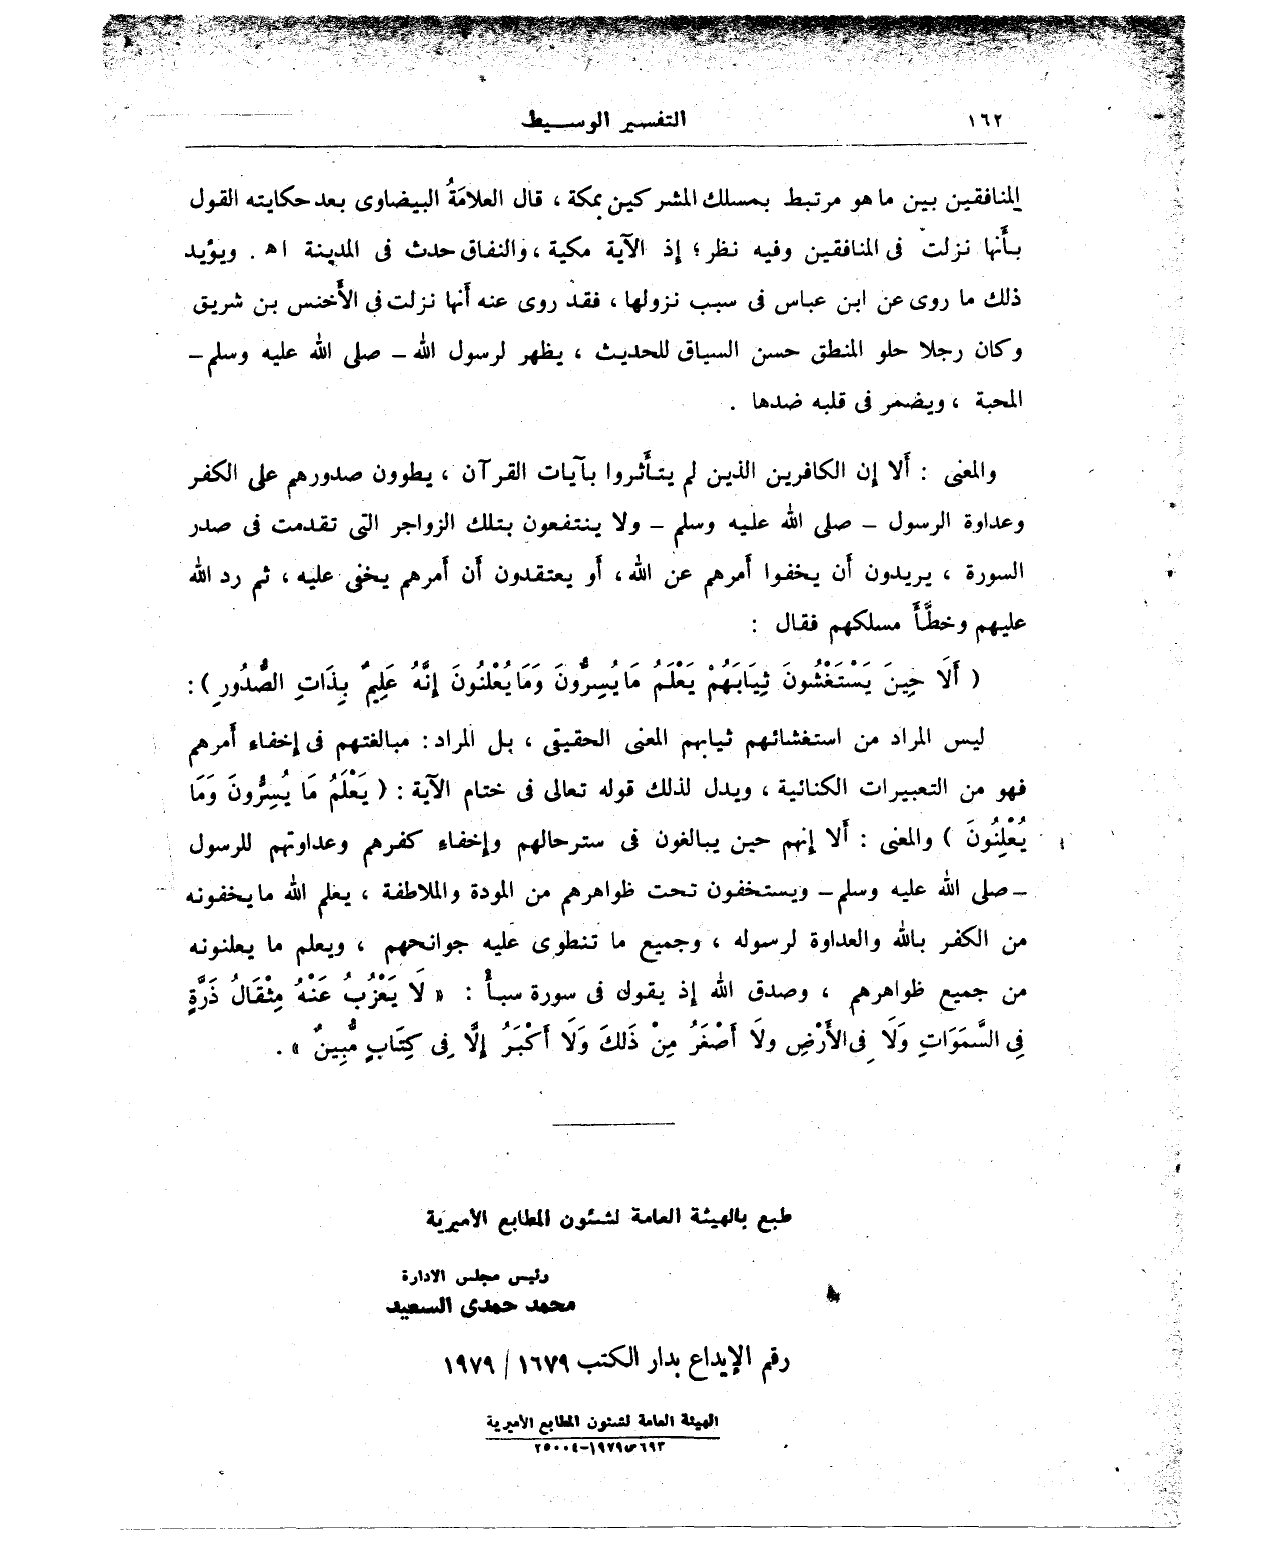 ١٦٢ التفسير الوسيط
المنافقين بين ما هو مرتبط بمسلك المشركين بمكة ، قال العلامَةُ البيضاوى بعد حكايته القول
بأَنها نزلت فى المنافقين وفيه نظر ؛ إذ الآية مكية ، والنفاق حدث فى المدينة اه . ويؤيد
ذلك ما روى عن ابن عباس فى سبب نزولها ، فقد روى عنه أَنها نزلت فى الأَخنس بن شريق
وكان رجلا حلو المنطق حسن السياق للحديث ، يظهر لرسول الله – صلى الله عليه وسلم –
المحبة ، ويضمر فى قلبه ضدها .
والمعنى : أَلا إن الكافرين الذين لم يتأَثروا بآيات القرآن ، يطوون صدورهم على الكفر
وعداوة الرسول – صلى الله عليه وسلم – ولا ينتفعون بتلك الزواجر التى تقدمت فى صدر
السورة ، يريدون أَن يخفوا أَمرهم عن الله ، أَو يعتقدون أَن أَمرهم يخفى عليه ، ثم رد الله
عليهم وخطَّأَ مسلكهم فقال :
( أَلَا حِينَ يَسْتَغْشُونَ ثِيَابَهُمْ يَعْلَمُ مَا يُسِرُّونَ وَمَا يُعْلِنُونَ إِنَّهُ عَلِيمٌ بِذَاتِ الصُّدُورِ ) :
ليس المراد من استغشائهم ثيابهم المعنى الحقيقى ، بل المراد : مبالغتهم فى إخفاء أَمرهم
فهو من التعبيرات الكنائية ، ويدل لذلك قوله تعالى فى ختام الآية : ( يَعْلَمُ مَا يُسِرُّونَ وَمَا
يُعْلِنُونَ ) والمعنى : أَلا إنهم حين يبالغون فى ستر حالهم وإخفاء كفرهم وعداوتهم للرسول
– صلى الله عليه وسلم – ويستخفون تحت ظواهرهم من المودة والملاطفة ، يعلم الله ما يخفونه
من الكفر بالله والعداوة لرسوله ، وجميع ما تنطوى عليه جوانحهم ، ويعلم ما يعلنونه
من جميع ظواهرهم ، وصدق الله إذ يقول فى سورة سبأ : « لَا يَعْزُبُ عَنْهُ مِثْقَالُ ذَرَّةٍ
فِى السَّمَوَاتِ وَلَا فِى الأَرْضِ ولَا أَصْغَرُ مِنْ ذَلكَ وَلَا أَكْبَرُ إِلَّا فِى كِتَابٍ مُّبِينٌ » .
طبع بالهيئة العامة لشئون المطابع الأميرية
رئيس مجلس الادارة
محمد حمدى السعيد
رقم الإيداع بدار الكتب ١٦٧٩ / ١٩٧٩
الهيئة العامة لشئون المطابع الأميرية
٦٩٣ س ١٩٧٩-٢٥٠٠٤